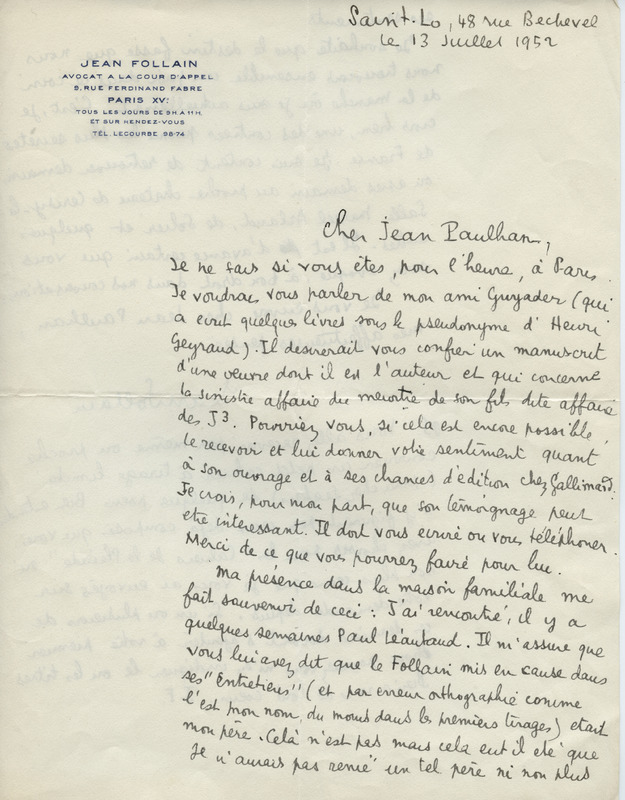 Saint-Lo, 48 rue Bechevel
le 13 Juillet 1952
JEAN FOLLAIN
AVOCAT A LA COUR D'APPEL
9, RUE FERDINAND FABRE
PARIS XV:
TOUS LES JOURS DE 9 H. A 11 H.
ET SUR RENDEZ-VOUS
TÉL. LECOURBE 98-74
Cher Jean Paulhan,
Je ne sais si vous êtes, pour l'heure, à Paris.
Je voudrais vous parler de mon ami Guyader (qui
a écrit quelques livres sous le pseudonyme d'Henri
Geyraud). Il desirerait vous confier un manuscrit
d'une œuvre dont il est l'auteur et qui concerne
la sinistre affaire du meurtre de son fils dite affaire
des J3. Pourriez vous, si cela est encore possible,
le recevoir et lui donner votre sentiment quant
à son ouvrage et à ses chances d'édition chez Gallimard.
Je crois, pour mon part, que son témoignage peut
etre interessant. Il doit vous ecrire ou vous téléphoner.
Merci de ce que vous pourrez faire pour lui.
Ma présence dans la maison familiale me
fait souvenir de ceci : J'ai rencontré, il y a
quelques semaines Paul Léautaud. Il m'assure que
vous lui avez dit que le Follain mis en cause dans
ses "Entretiens" (et par erreur orthographié comme
l'est mon nom, du moins dans les premiers tirages) etait
mon père. Celà n'est pas mais cela eut il été que
Je n'aurais pas renié un tel père ni non plus